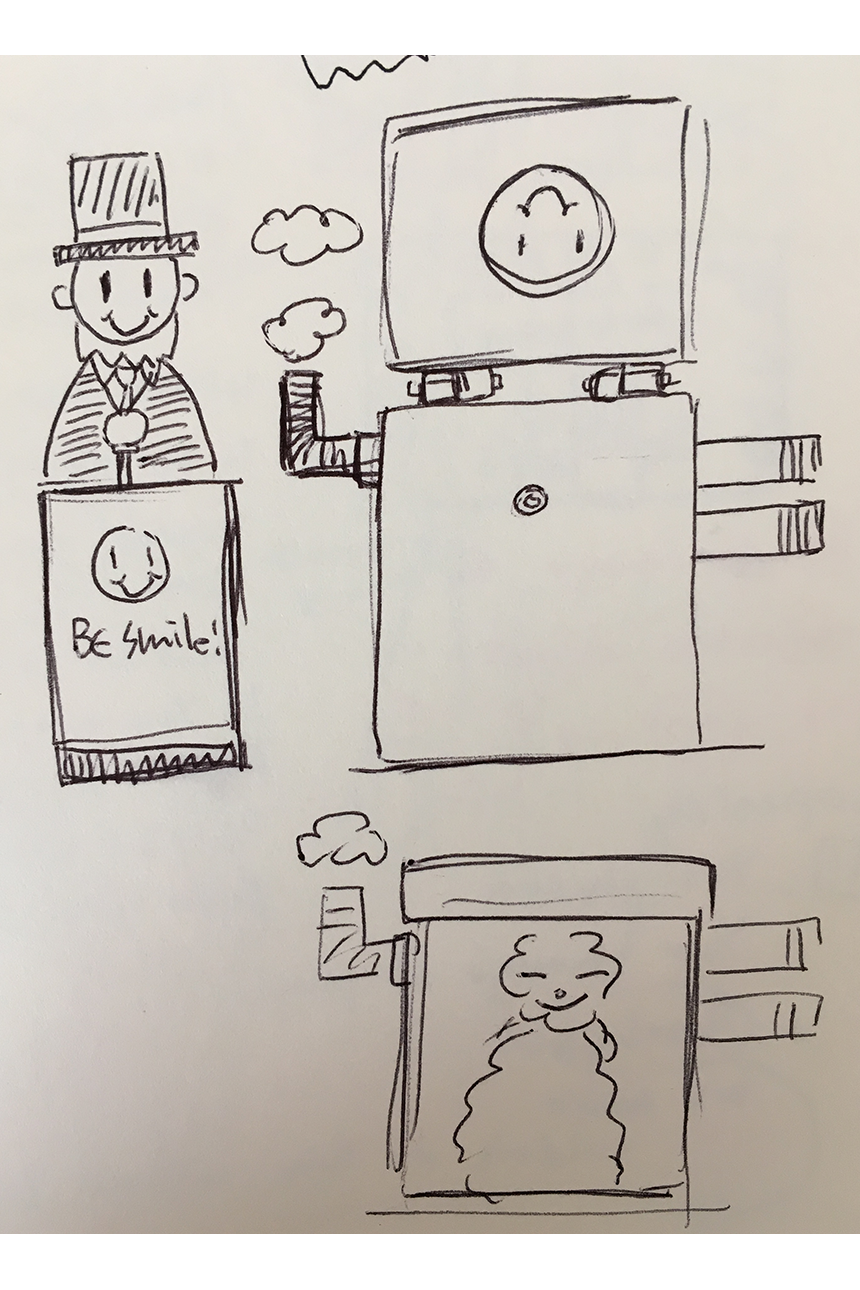 BE Smile!